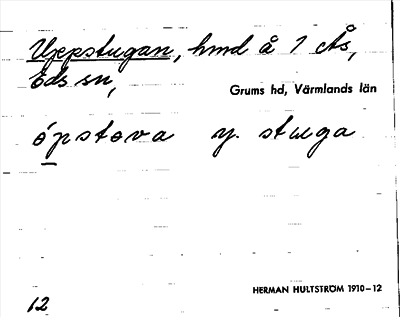 Uppstugan, hmd å 1 Ås,
Eds sn,
Grums hd, Värmlands län
ópstova y. stuga
HERMAN HULTSTRÖM 1910–12
12